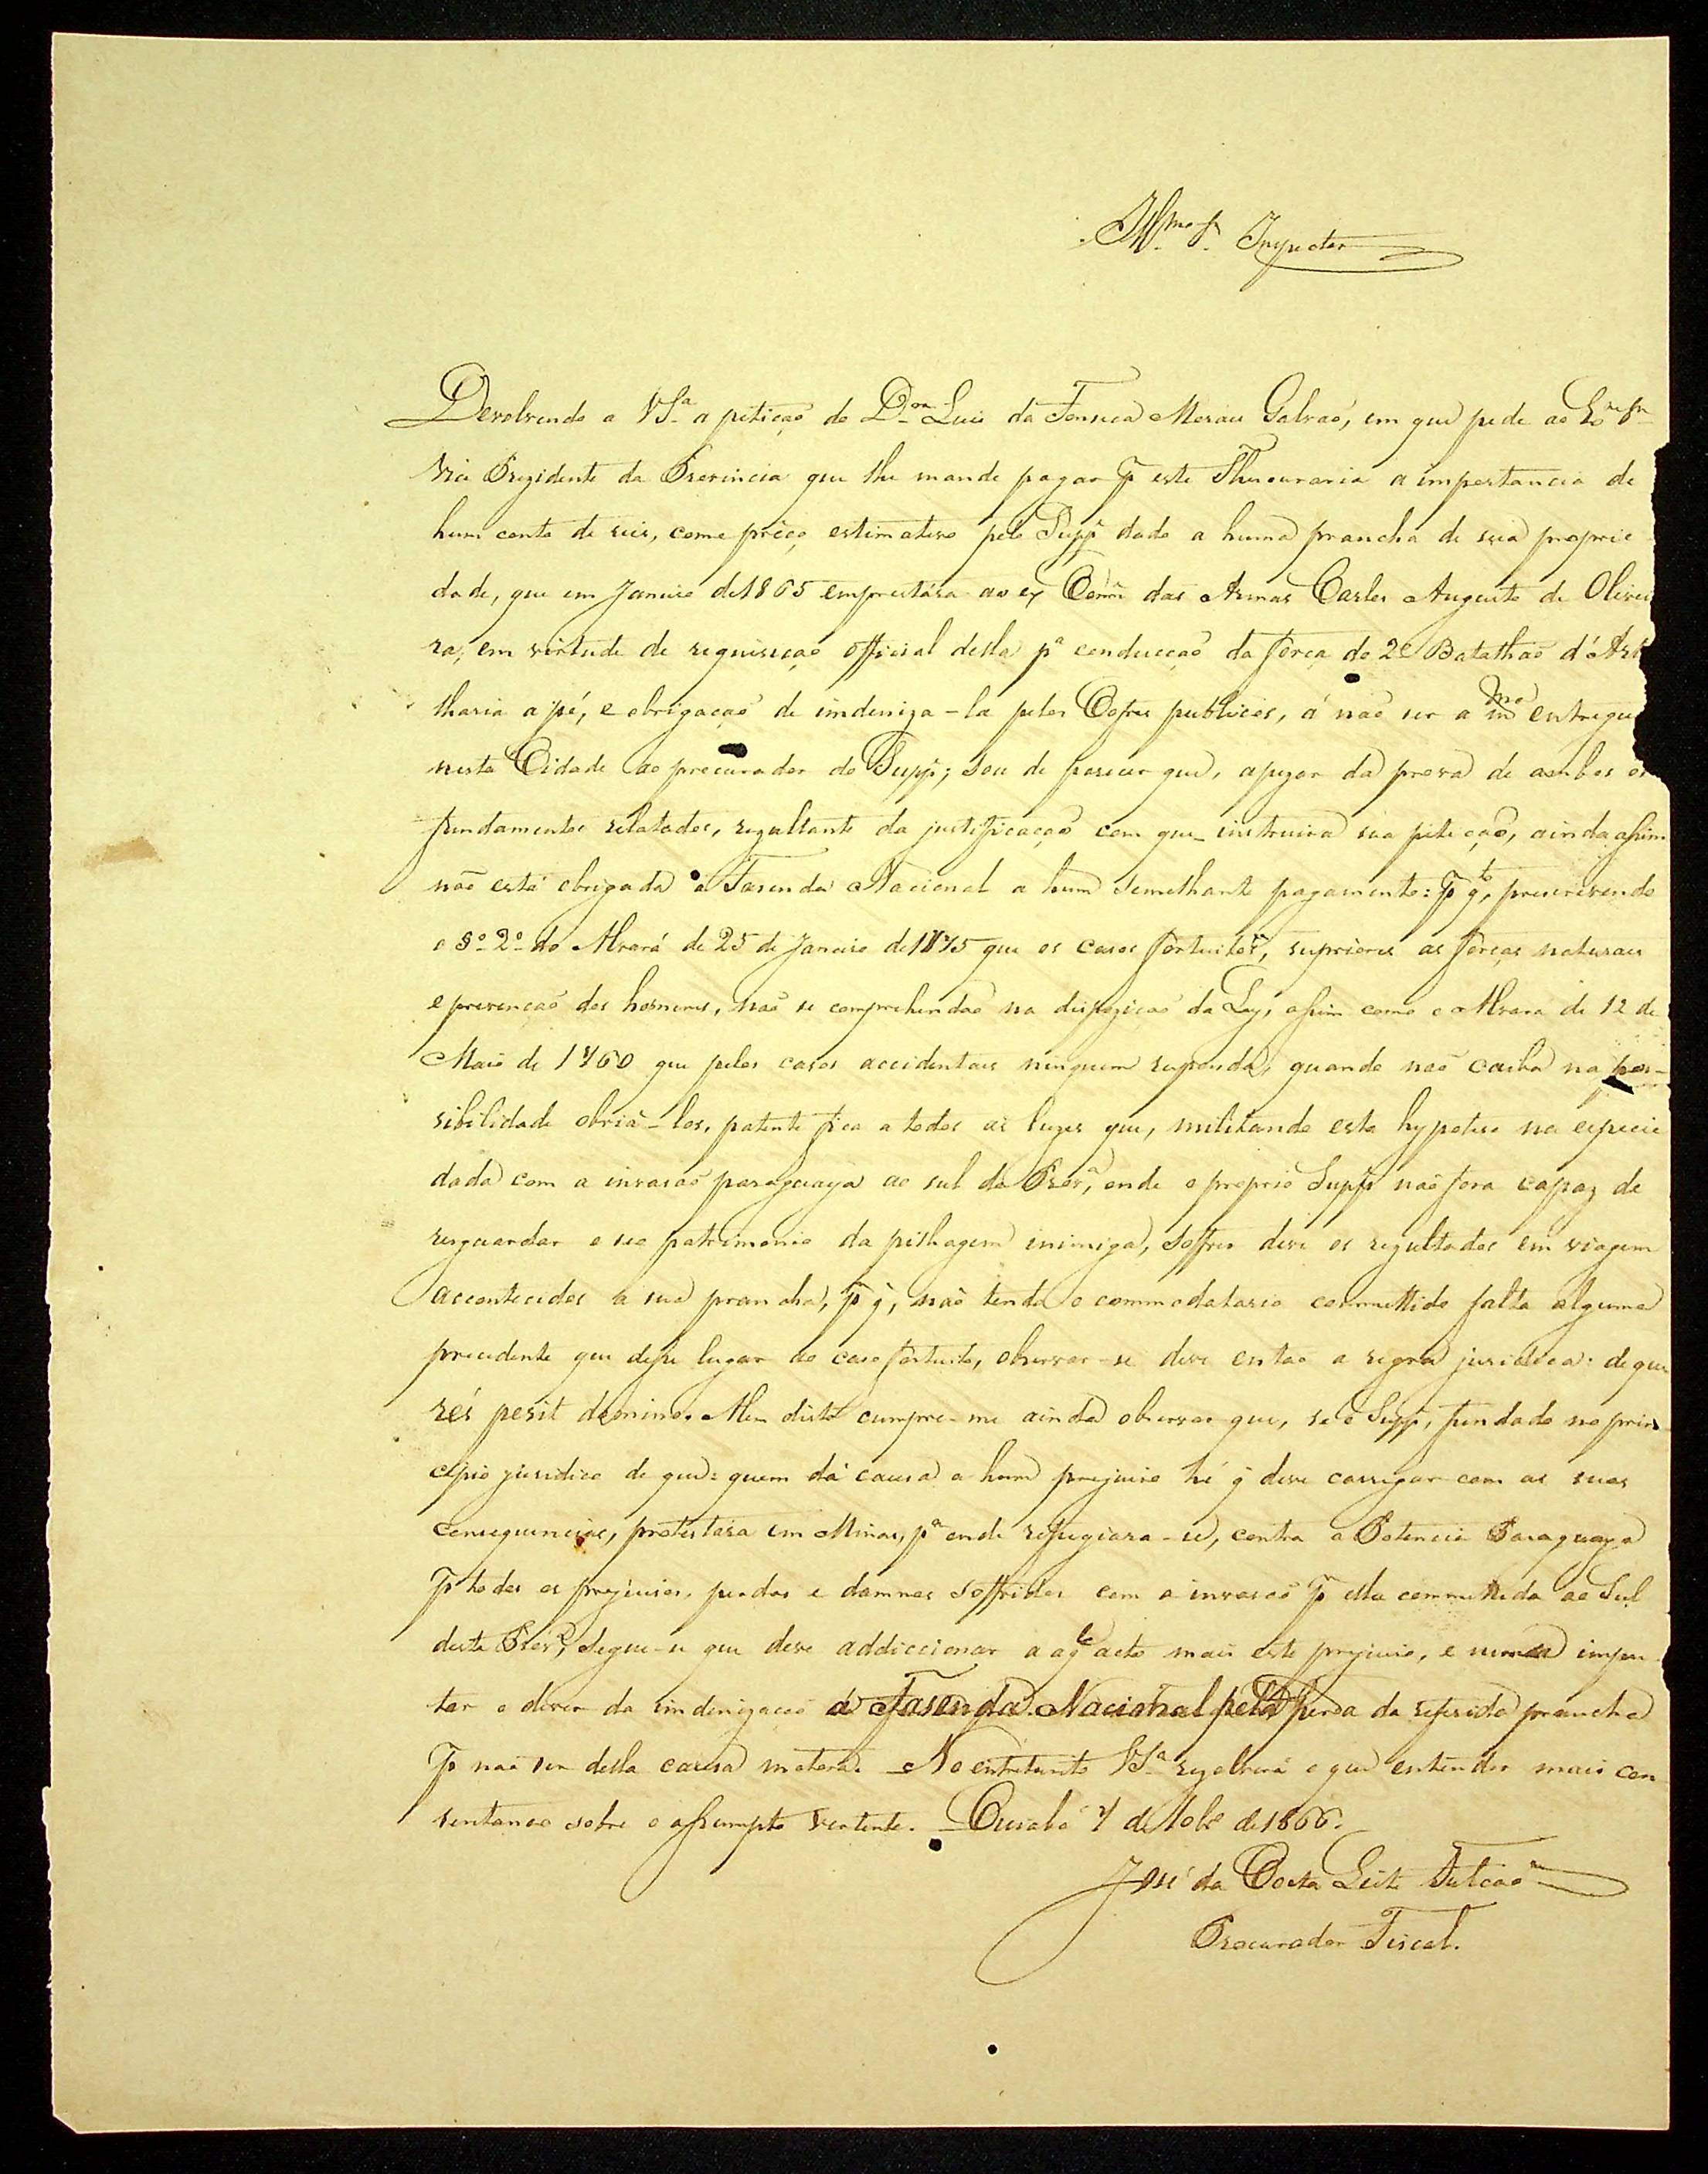 Ill.mo Sr. Inspector
Devolvendo a VS.a a petição de D.or Luis da Fonseca Moraes Galvão, em que pede ao Ex.mo Sr.
Vice Prezidente da Provincia que lhe mande pagar p. esta Thesouraria a importancia de
hum conto de reis, como préço estimativo pelo Supp.e dado a huma prancha de sua proprie-
dade, que em Janeiro de 1865 emprestára ao ex Com.e das Armas Carlos Augusto de Olivei
ra, em virtude de requisição official della p.a conducção da força do 2.o Batalhão d'Arti
lharia a pé, e obrigação de indeniza-la pelos Cofres publicos, á não ser a m.ma entregue
nesta Cidade ao procurador do Supp.e; sou de parecer que, apezar da prova de ambos os
fundamentos relatados, rezultante da justificação com que instruira sua petição, ainda assim
não está obrigada a Fasenda Nacional a hum semelhante pagamento: p. q.to, prescrevendo
o §.o 2.o do Alvará de 25 de Janeiro de 1775 que os casos fortuitos, supriores as forças naturaes
e prevenção dos homens, não se comprehendão na dispozição da Ley, assim como o Alvará de 12 de
Maio de 1760 que pelos casos accidentaes ninguem responda, quando não caiba na pos-
sibilidade obviá-los, patente fica a todas as luzes que, militando esta hypotese na especie
dada com a invasão paraguaya ao sul da Prov.a, onde o proprio Supp.e não fora capaz de
resguardar o seo patrimonio da pilhagem inimiga, soffrer deve os rezultados em viagem
accontecidos a sua prancha, p. q., não tendo o commodatario commettido falta alguma
precedente que désse lugar ao caso fortuito, observar-se deve então a regra juridica: de que
rés perit domino. Alem disto cumpre-me ainda observar que, se o Supp.e, fundado no prin-
cipio juridico de que: quem dá causa a hum prejuizo hé q. deve carregar com as suas
consequencias, protestara em Minas, p.a onde refugiara-se, contra a Potencia Paraguaya
p. todos os prejuisos, perdas e damnos soffridos com a invasão p. ella commettida ao Sul
desta Prov.a, segue-se que deve addiccionar a aq.le acto mais este prejuiso, e nunca impu-
tar o dever da indenização á Fasenda Nacional pela perda da referida prancha
p. não ser della causa motora. No entretanto VS.a rezolverá o que entender mais con-
sentaneo sobre o assumpto vertente. Cuiabá 7 de 10br.o de 1866.
José da Costa Leite Falcão
Procurador Fiscal.